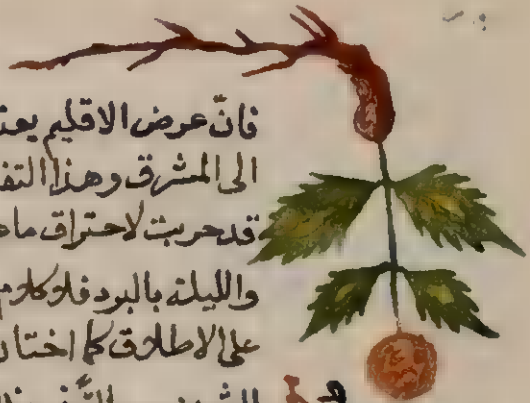 فانّ عرض الاقليم يعد
الى المشرق وهذا التفـ
قد حريت لاحتراق ما
والليلة بالبرد فلا كلام
على الاطلاق كما اختار